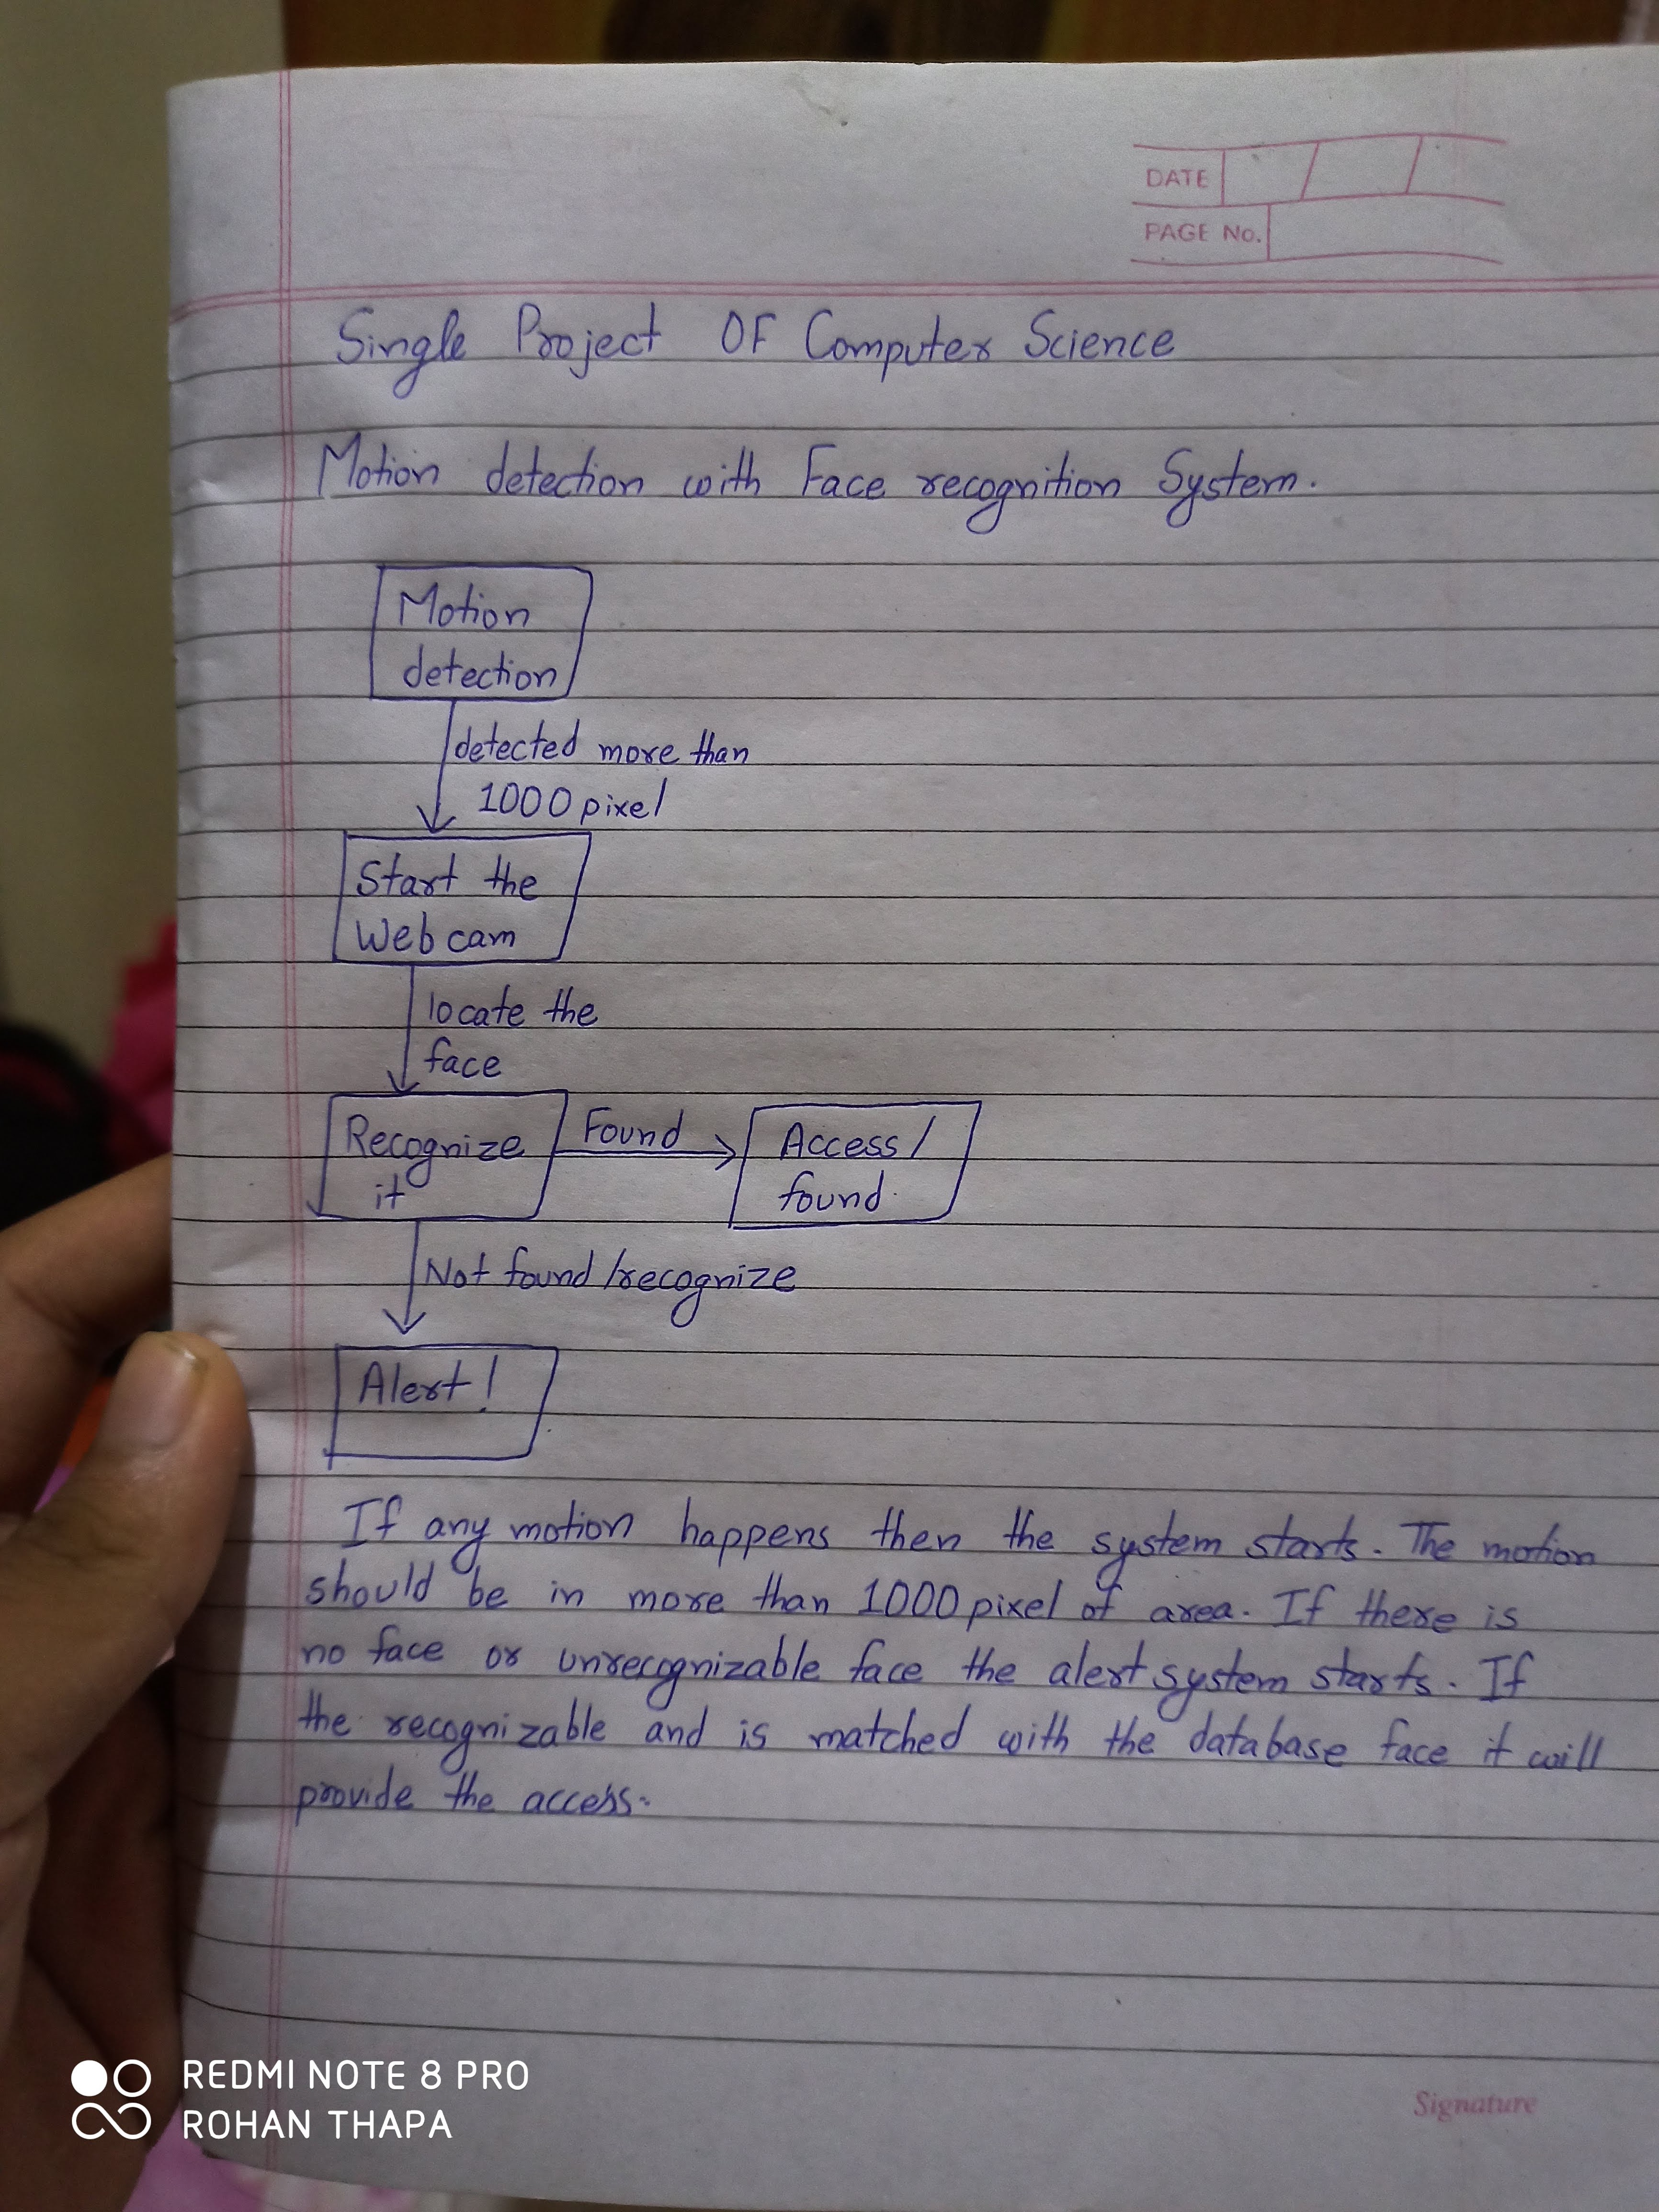 DATE
PAGE No.
Single Project OF Computer Science
Motion detection with Face recognition System.
Motion
detection
detected more than
1000 pixel
Start the
Web cam
locate the
face
Recognize
it
Found
Access /
found.
Not found /recognize
Alert!
If any motion happens then the system starts. The motion
should be in more than 1000 pixel of area. If there is
no face or unrecognizable face the alert system starts. If
the recognizable and is matched with the database face it will
provide the access.
Signature
REDMI NOTE 8 PRO
ROHAN THAPA